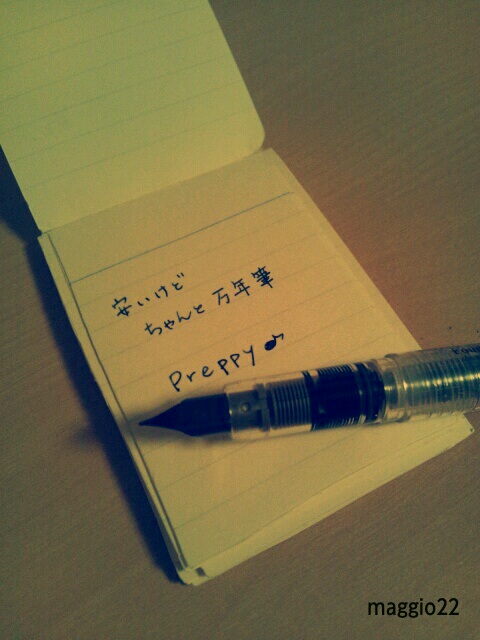 安いけど
ちゃんと万年筆
Preppy♪
maggio22